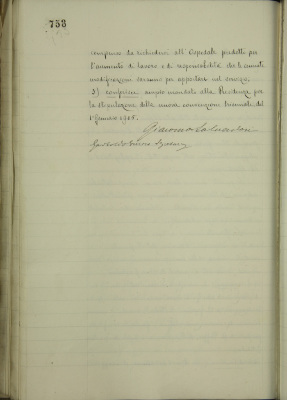 758
compenso da richiedersi all'Ospedale predetto per
l'aumento di lavoro e di responsabilità che le
modificazioni verranno per apportare nel servizio.
3) conferisce ampio mandato alla Presidenza per
la stipulazione della nuova convenzione biennale dal
1° Gennaio 1908.
Giacomo